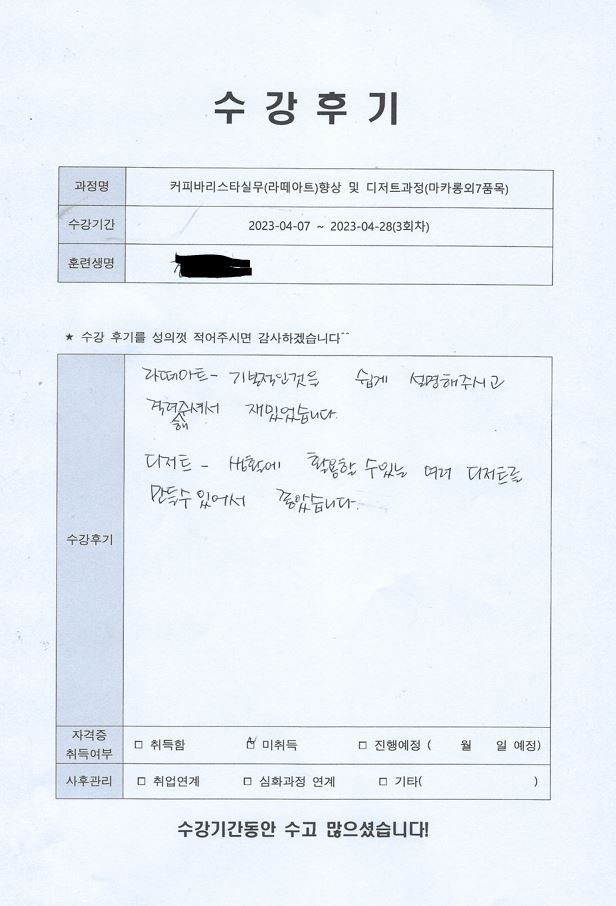 수 강 후 기
과정명 커피바리스타실무(라떼아트)향상 및 디저트과정(마카롱외7품목)
수강기간 2023-04-07 ~ 2023-04-28(3회차)
훈련생명
★ 수강 후기를 성의껏 적어주시면 감사하겠습니다^^
수강후기
라떼아트- 기본적인것을 쉽게 설명해주시고
격려해주셔서 재밌었습니다.
디저트 - 생활에 활용할 수있는 여러 디저트를
만들수 있어서 좋았습니다.
자격증 취득여부 □ 취득함 ☑ 미취득 □ 진행예정 ( 월 일 예정)
사후관리 □ 취업연계 □ 심화과정 연계 □ 기타( )
수강기간동안 수고 많으셨습니다!